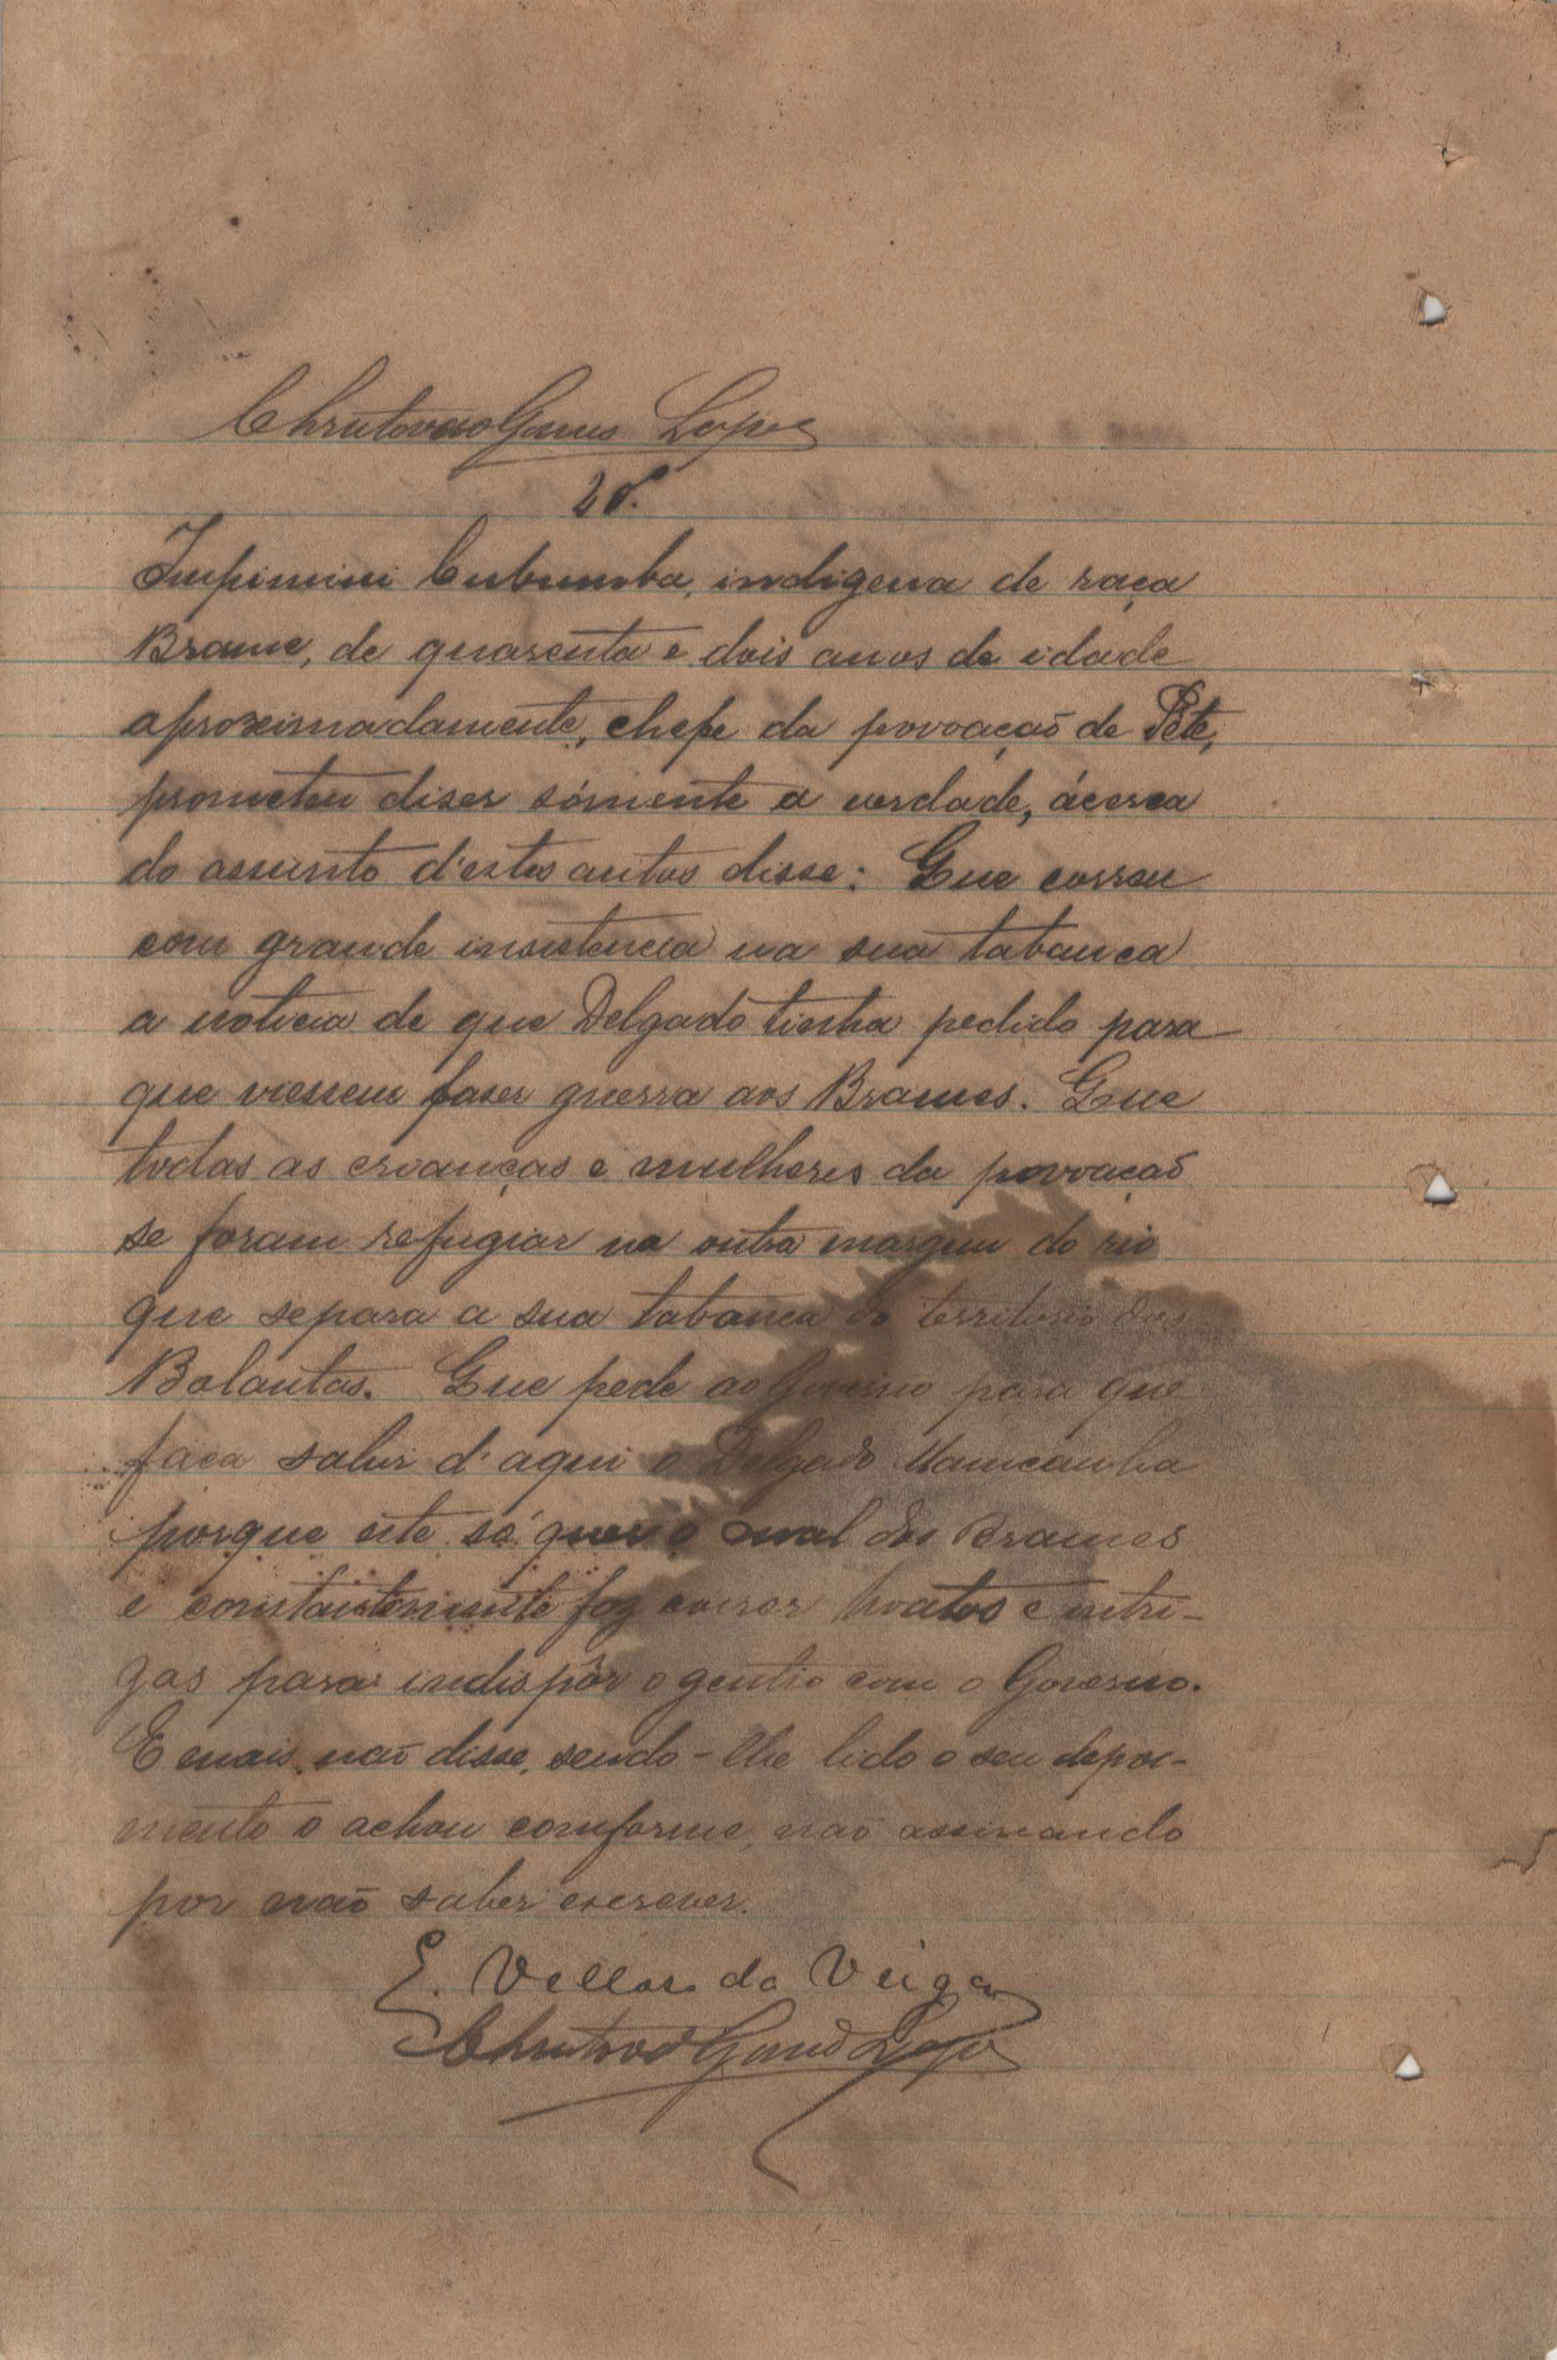 Christovão Gomes Lopes
2º.
Impinini Cubumba, indigena de raça
Brame, de quarenta e dois anos de idade
aproximadamente, chefe da povoação de Pete,
prometeu diser sómente a verdade, ácerca
do assunto d'estes autos disse: Que correu
com grande insistencia na sua tabanca
a noticia de que Delgado tinha pedido para
que viessem faser guerra aos Brames. Que
todas as creanças e mulheres da povoação
se foram refugiar na outra margem do rio
que separa a sua tabanca do territorio dos
Balantas. Que pede ao Governo para que
faça sahir d'aqui o Delgado Mamcanha
porque este só quer o mal dos Brames
e constantemente faz correr boatos e intri-
gas para indispôr o gentio com o Governo.
E mais não disse, sendo-lhe lido o seu depoi-
mento o achou comforme, não assinando
por não saber escrever.
E. Vellez da Veiga
Christovão Gomes Lopes